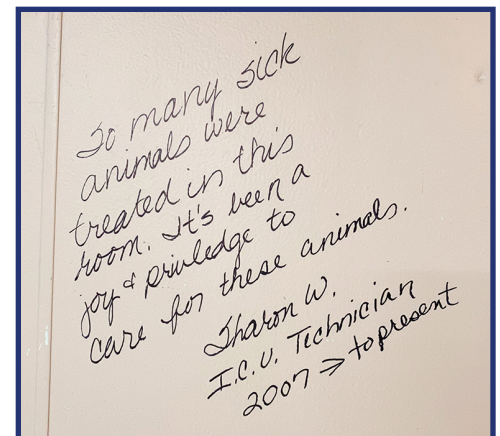 So many sick
animals were
treated in this
room. It's been a
joy & priviledge to
care for these animals.
Sharon W.
I.C.U. Technician
2007 → to present